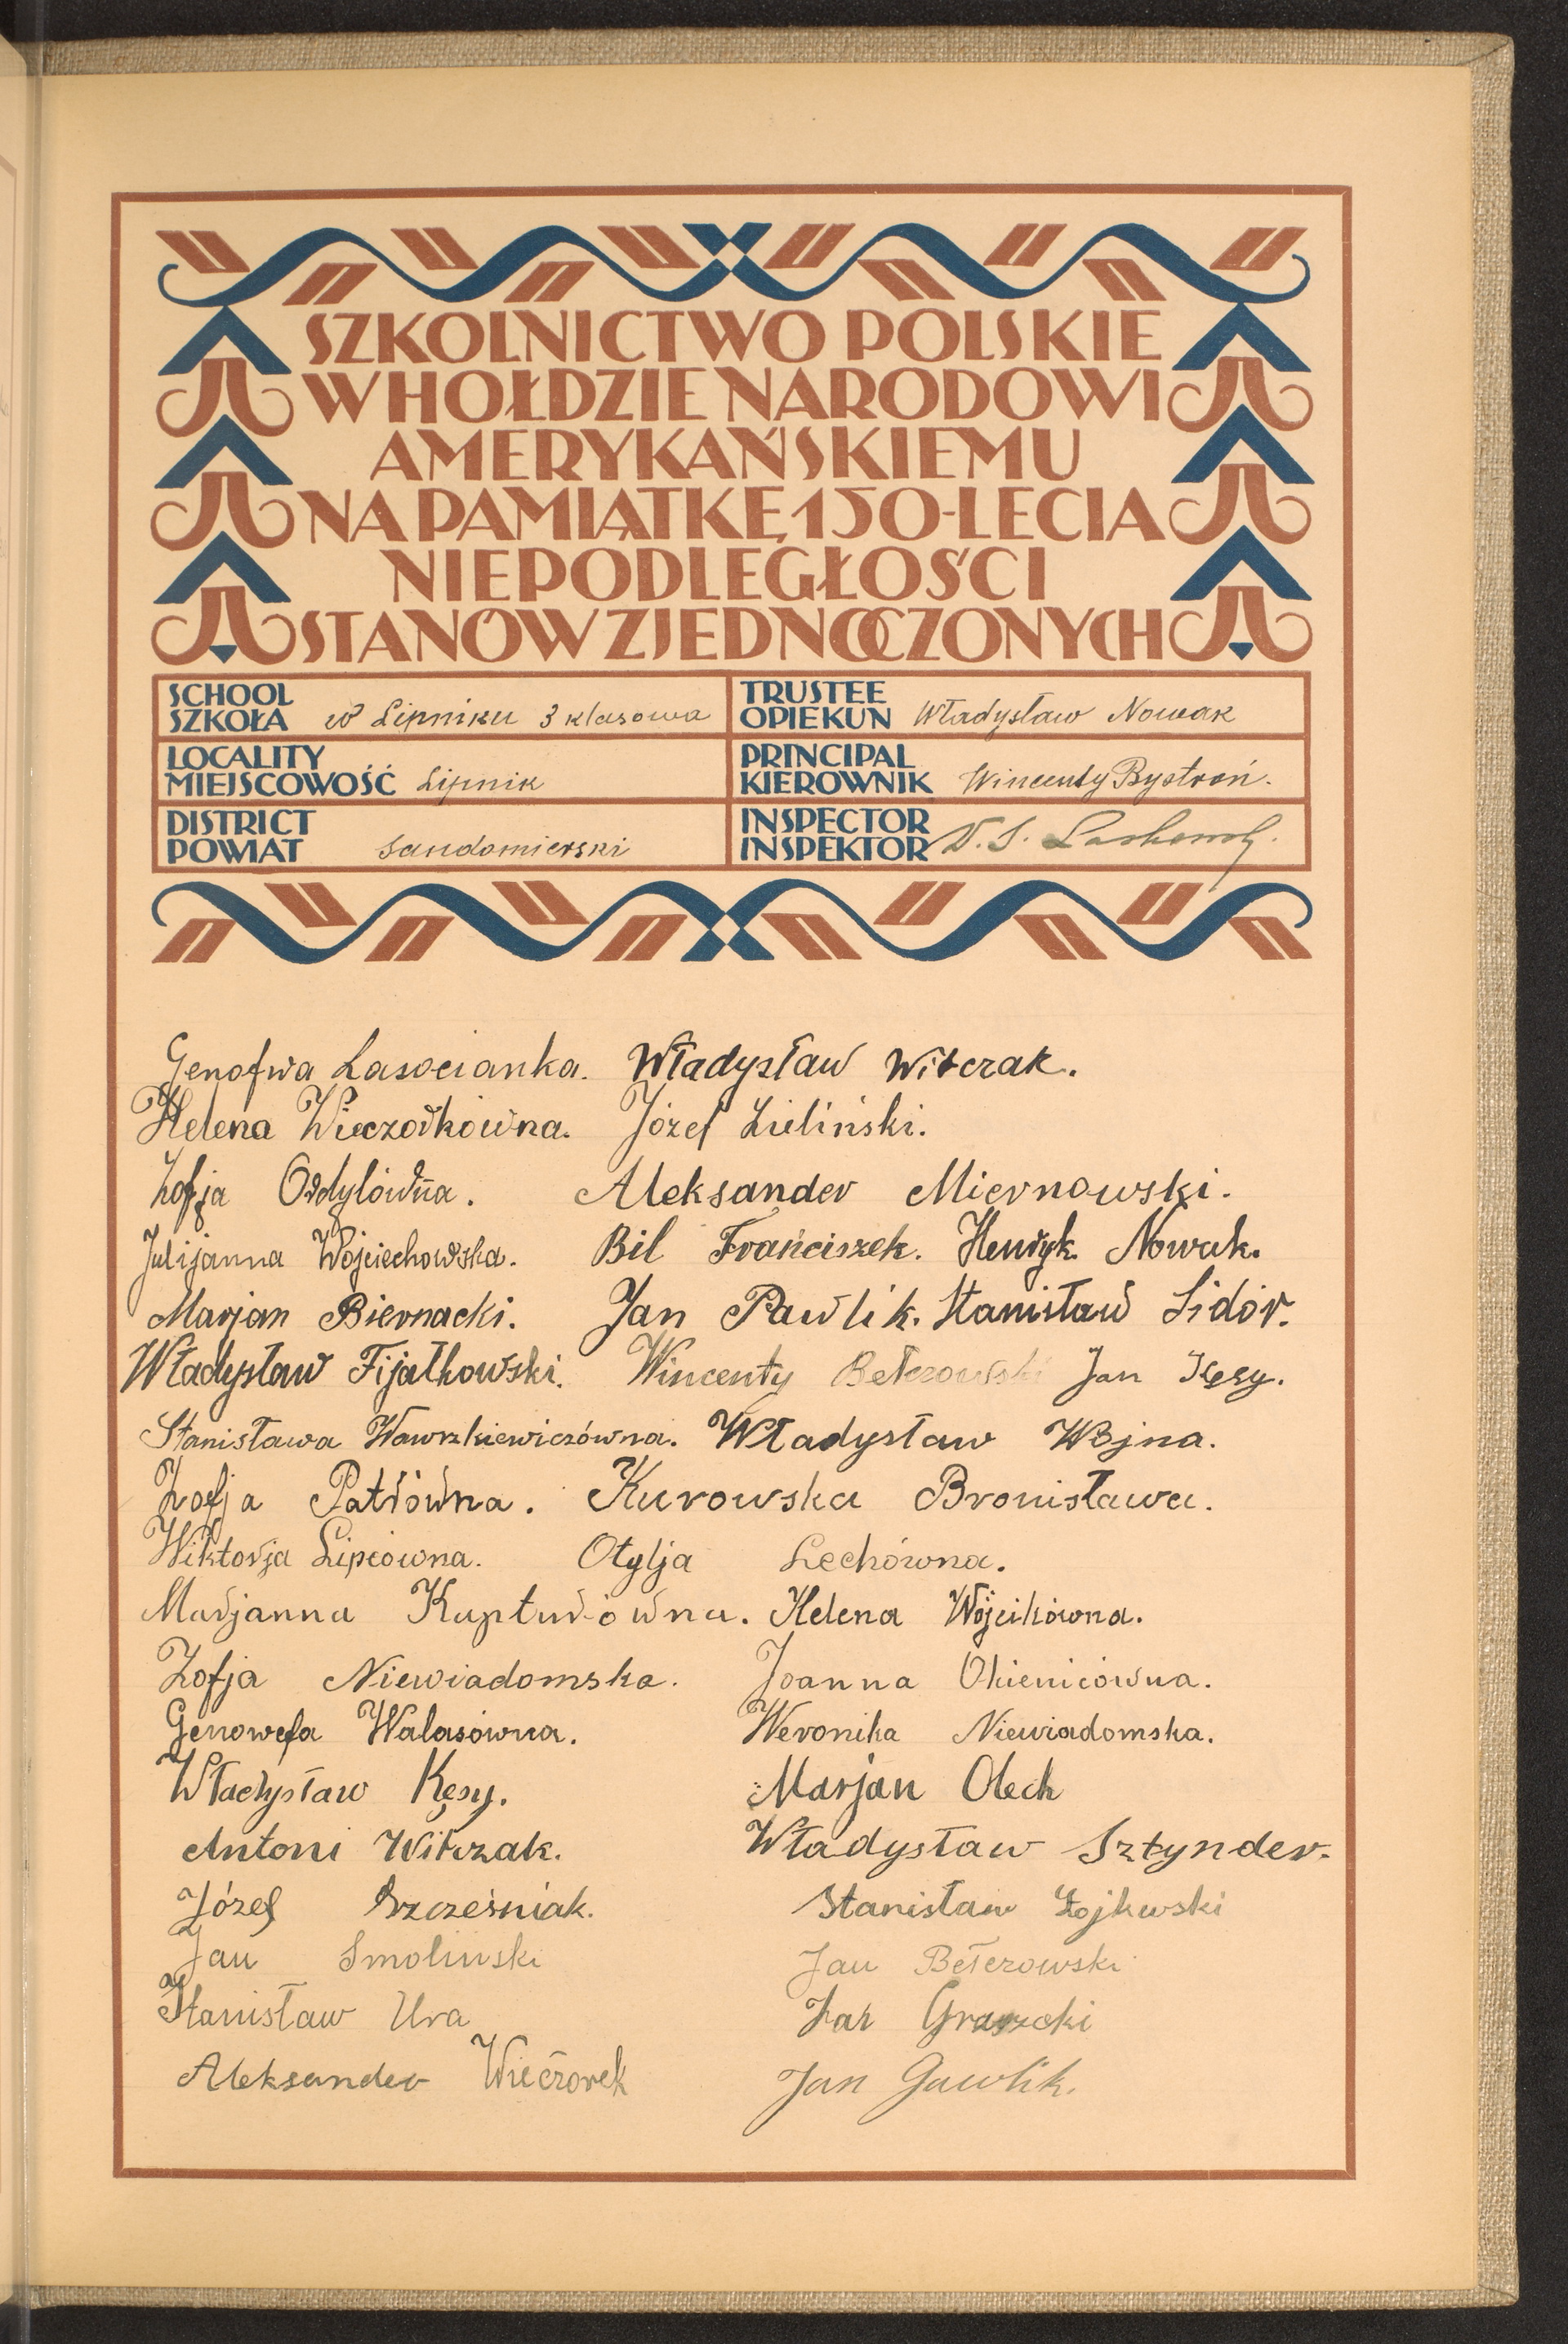 SZKOLNICTWO POLSKIE
W HOŁDZIE NARODOWI
AMERYKAŃSKIEMU
NA PAMIĄTKĘ 150-LECIA
NIEPODLEGŁOŚCI
STANÓW ZJEDNOCZONYCH
SCHOOL
SZKOŁA w Lipniku 3 klasowa
TRUSTEE
OPIEKUN Władysław Nowak
LOCALITY
MIEJSCOWOŚĆ Lipnik
PRINCIPAL
KIEROWNIK Wincenty Bystroń.
DISTRICT
POWIAT sandomierski
INSPECTOR
INSPEKTOR
Genofwa Lasocianka. Władysław Witczak.
Helena Wieczorkówna. Józef Zieliński.
Zofja Ordylówna. Aleksander Miernowski.
Julijanna Wojciechowska. Bil Franciszek. Henryk Nowak.
Marjan Biernacki. Jan Pawlik. Stanisław Sidór.
Władysław Fijałkowski. Wincenty Bełczowski Jan Kęsy.
Stanisława Wawrzkiewiczówna. Władysław Wojna.
Zofja Patrówna. Kurowska Bronisława.
Wiktorja Lipcówna. Otylja Lechówna.
Marjanna Kapturówna. Helena Wójcikówna.
Zofja Niewiadomska. Joanna Okienicówna.
Genowefa Walasówna. Weronika Niewiadomska.
Władysław Kęsy. Marjan Olech
Antoni Witczak. Władysław Sztynder.
Józef Szcześniak. Stanisław
Jan Smolinski Jan Bełczowski
Stanisław Ura
Aleksander Wieczorek Jan Gawlik.